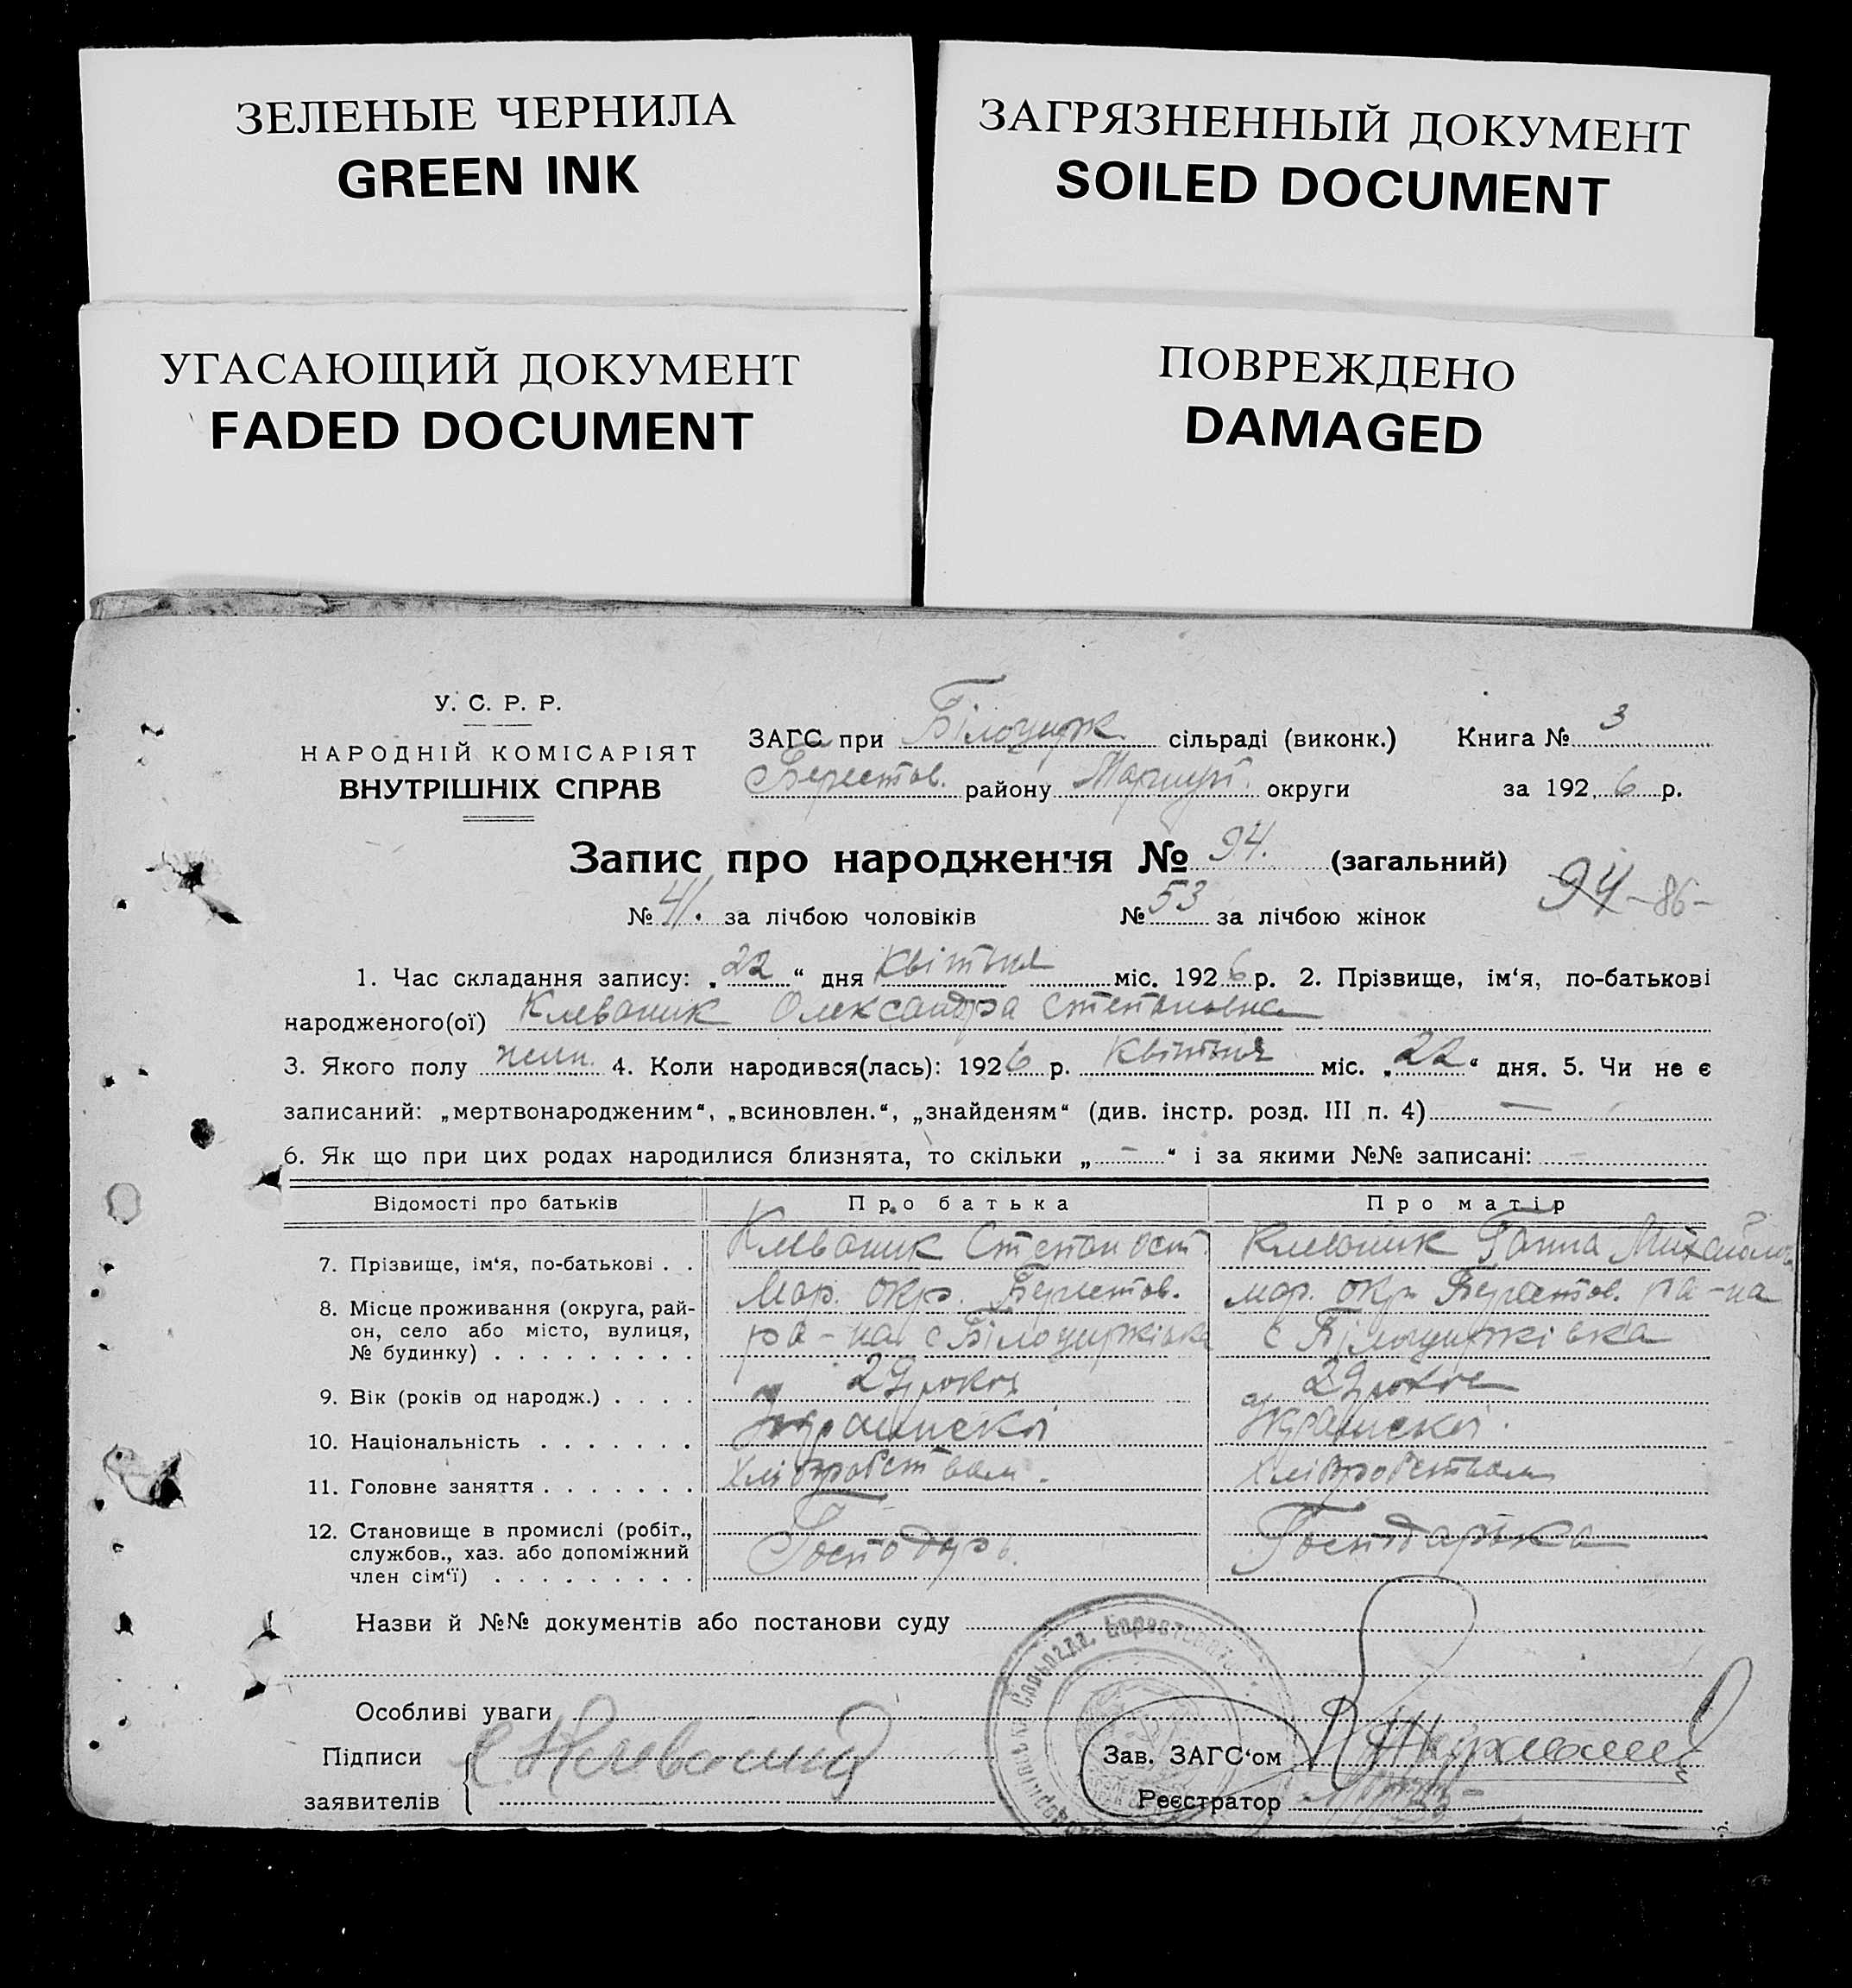 ЗЕЛЕНЫЕ ЧЕРНИЛА
GREEN INK
ЗАГРЯЗНЕННЫЙ ДОКУМЕНТ
SOILED DOCUMENT
УГАСАЮЩИЙ ДОКУМЕНТ
FADED DOCUMENT
ПОВРЕЖДЕНО
DAMAGED
У. С. Р. Р.
НАРОДНІЙ КОМІСАРІЯТ
ВНУТРІШНІХ СПРАВ
ЗАГС при Білоцерк сільраді (виконк.) Книга № 3
Берестов. району Маріуп. округи за 1926 р.
Запис про народження № 94. (загальний)
94 - 86 -
№ 41. за лічбою чоловіків № 53 за лічбою жінок
1. Час складання запису: „22“ дня Квітня міс. 1926 р. 2. Прізвище, ім‘я, по-батькові
народженого(ої) Клеваник Олександра Степановна
3. Якого полу 4. Коли народився(лась): 1926 р. Квітня міс. „22“ дня. 5. Чи не є
записаний: „мертвонародженим“, „всиновлен.“, „знайденям“ (див. інстр. розд. III п. 4) —
6. Як що при цих родах народилися близнята, то скільки „ - “ і за якими №№ записані: -
Відомості про батьків Про батька Про матір
7. Прізвище, ім‘я, по-батькові . . Клеваник Степан Ост. Клеваник Ганна Михайлов
8. Місце проживання (округа, рай- Мар. окр. Берестов. Мар. окр Берестов. ра-на
он, село або місто, вулиця, ра-на с Білоциржівка с Білоциржівка
№ будинку) . . . . . . . . .
9. Вік (років од народж.) . . . . 29 29
10. Національність . . . . . . . Украинскої Украинскої
11. Головне заняття . . . . . . . Хліборобством. Хліборобством
12. Становище в промислі (робіт.,
службов., хаз. або допоміжний Господарь. Господарька
член сім‘ї) . . . . . . . . .
Назви й №№ документів або постанови суду
Особливі уваги
Підписи
заявителів
Зав. ЗАГС‘ом
Реєстратор